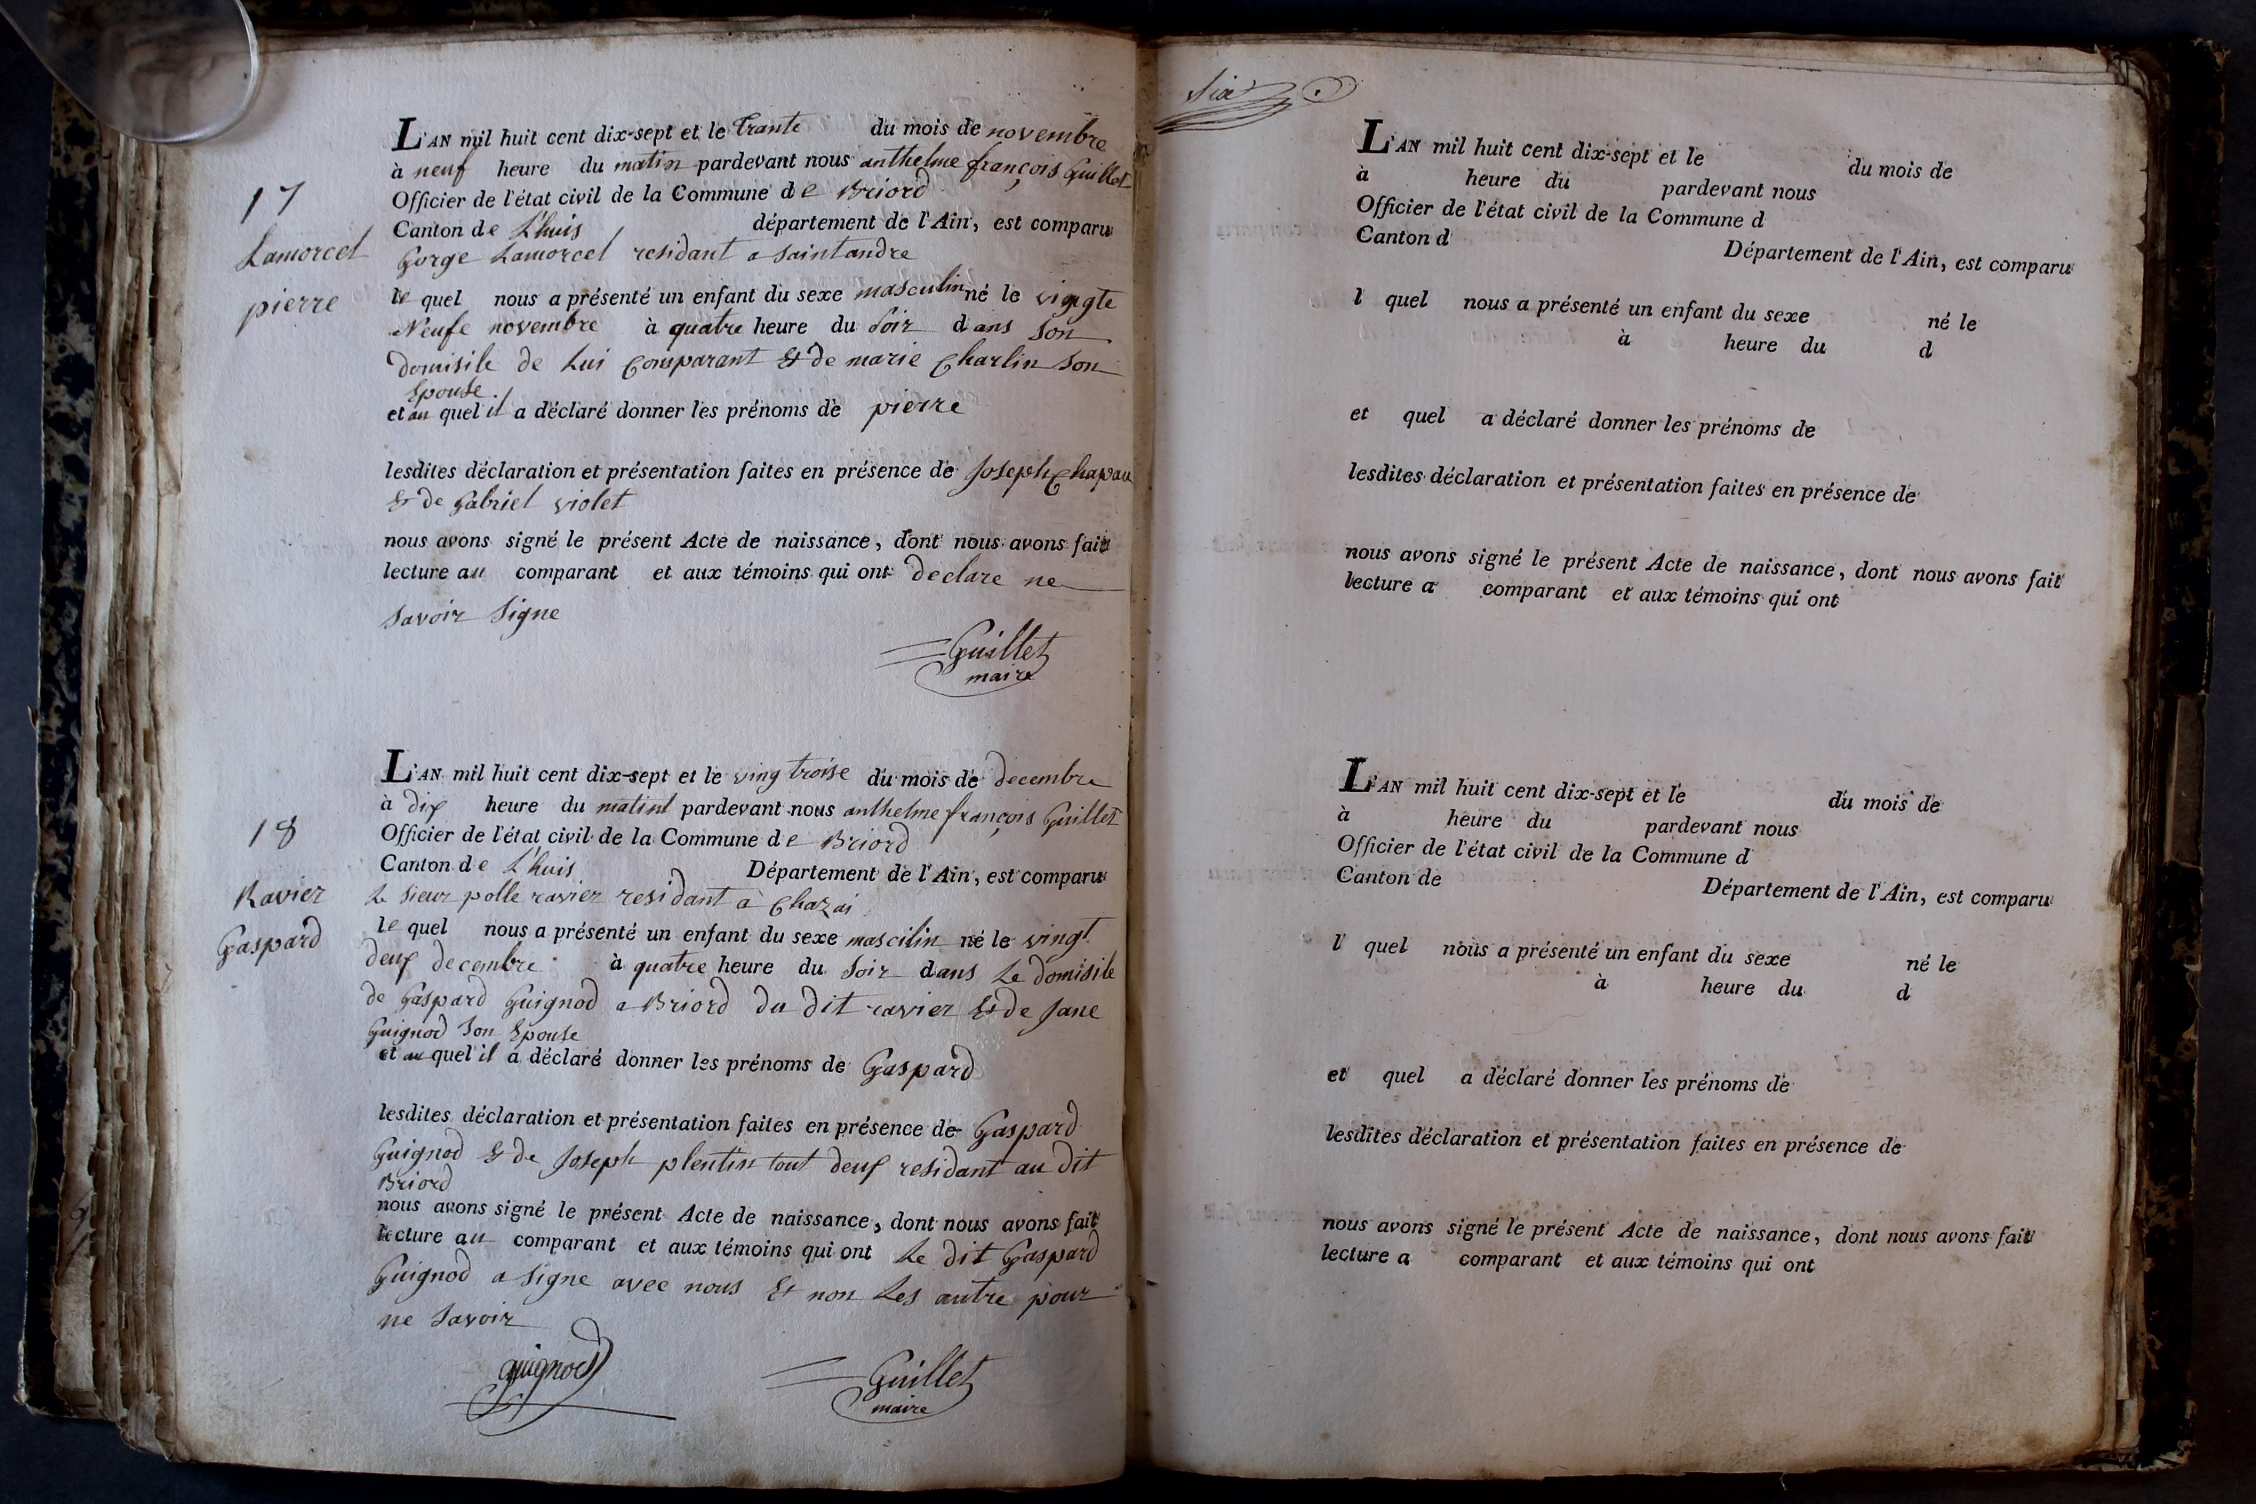 17
Lamorcel
pierre
L'AN mil huit cent dix-sept et le trante du mois de novembre
à neuf heure du matin pardevant nous anthelme françois Guillet
Officier de l'état civil de la Commune de Briord
Canton de L'huis département de l'Ain, est comparu
Gorge Lamorcel residant a saint andre
le quel nous a présenté un enfant du sexe masculin né le vingte
Neufe novembre à quatre heure du soir dans son
domisile de Lui Comparant et de marie Charlin son
Epouse
et au quel il a déclaré donner les prénoms de pierre
lesdites déclaration et présentation faites en présence de Joseph Chapau
et de Gabriel violet
nous avons signé le présent Acte de naissance, dont nous avons fait
lecture au comparant et aux témoins qui ont declare ne
savoir signe
Guillet
maire
18
Ravier
Gaspard
L'AN mil huit cent dix-sept et le ving troise du mois de decembre
à dix heure du matint pardevant nous anthelme françois Guillet
Officier de l'état civil de la Commune de Briord
Canton de L'huis Département de l'Ain, est comparu
Le sieur polle ravier residant à Chazai
le quel nous a présenté un enfant du sexe mascilin né le vingt
deux decembre à quatre heure du soir dans Le domisile
de Gaspard Guignod a Briord du dit ravier et de Jane
Guignod son Epouse
et au quel il a déclaré donner les prénoms de Gaspard
lesdites déclaration et présentation faites en présence de Gaspard
Guignod et de Joseph plentin tout deux residant au dit
Briord
nous avons signé le présent Acte de naissance, dont nous avons fait
lecture au comparant et aux témoins qui ont Le dit Gaspard
Guignod a signe avec nous Et non Les autre pour
ne savoir
guignod
Guillet
maire
six
L'AN mil huit cent dix-sept et le du mois de
à heure du pardevant nous
Officier de l'état civil de la Commune d
Canton d Département de l'Ain, est comparu
l quel nous a présenté un enfant du sexe né le
à heure du d
et quel a déclaré donner les prénoms de
lesdites déclaration et présentation faites en présence de
nous avons signé le présent Acte de naissance, dont nous avons fait
lecture a comparant et aux témoins qui ont
L'AN mil huit cent dix-sept et le du mois de
à heure du pardevant nous
Officier de l'état civil de la Commune d
Canton de Département de l'Ain, est comparu
l quel nous a présenté un enfant du sexe né le
à heure du d
et quel a déclaré donner les prénoms de
lesdites déclaration et présentation faites en présence de
nous avons signé le présent Acte de naissance, dont nous avons fait
lecture a comparant et aux témoins qui ont